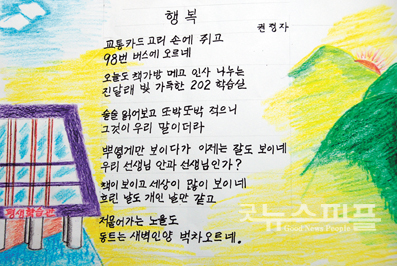 행복
권정자
교통카드 고리 손에 쥐고
98번 버스에 오르네
오늘도 책가방 메고 인사 나누는
진달래 빛 가득한 202 학습실
술술 읽어보고 또박또박 적으니
그것이 우리 말이더라
뿌옇게만 보이다가 이제는 잘도 보이네
우리 선생님 안과 선생님인가?
책이 보이고 세상이 많이 보이네
흐린 날도 개인 날만 같고
저물어가는 노을도
동트는 새벽인양 벅차오르네.
평생학습관
굿뉴스피플
Good News People